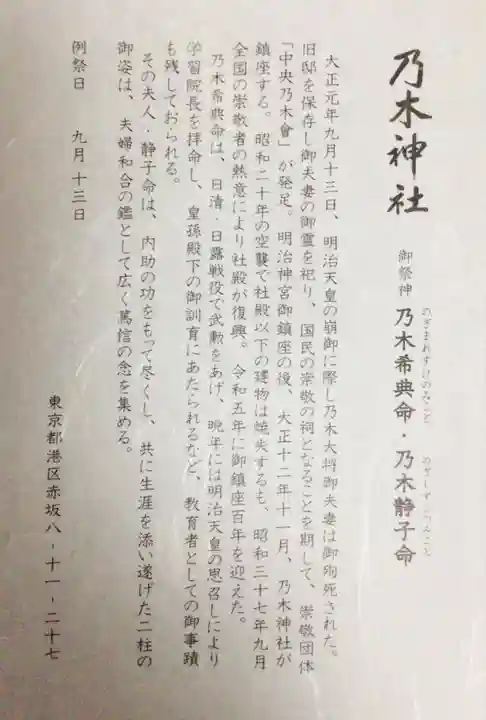 乃木神社
御祭神 乃木希典命・乃木静子命
のぎまれすけのみこと のぎしずこのみこと
大正元年九月十三日、明治天皇の崩御に際し乃木大将御夫妻は御殉死された。
旧邸を保存し御夫妻の御霊を祀り、国民の崇敬の祠となることを期して、崇敬団体
「中央乃木會」が発足。明治神宮御鎮座の後、大正十二年十一月、乃木神社が
鎮座する。昭和二十年の空襲で社殿以下の建物は焼失するも、昭和三十七年九月
全国の崇敬者の熱意により社殿が復興。令和五年に御鎮座百年を迎えた。
乃木希典命は、日清・日露戦役で武勲をあげ、晩年には明治天皇の思召しにより
学習院長を拝命し、皇孫殿下の御訓育にあたられるなど、教育者としての御事蹟
も残しておられる。
その夫人・静子命は、内助の功をもって尽くし、共に生涯を添い遂げた二柱の
御姿は、夫婦和合の鑑として広く篤信の念を集める。
例祭日 九月十三日
東京都港区赤坂八-十一-二十七